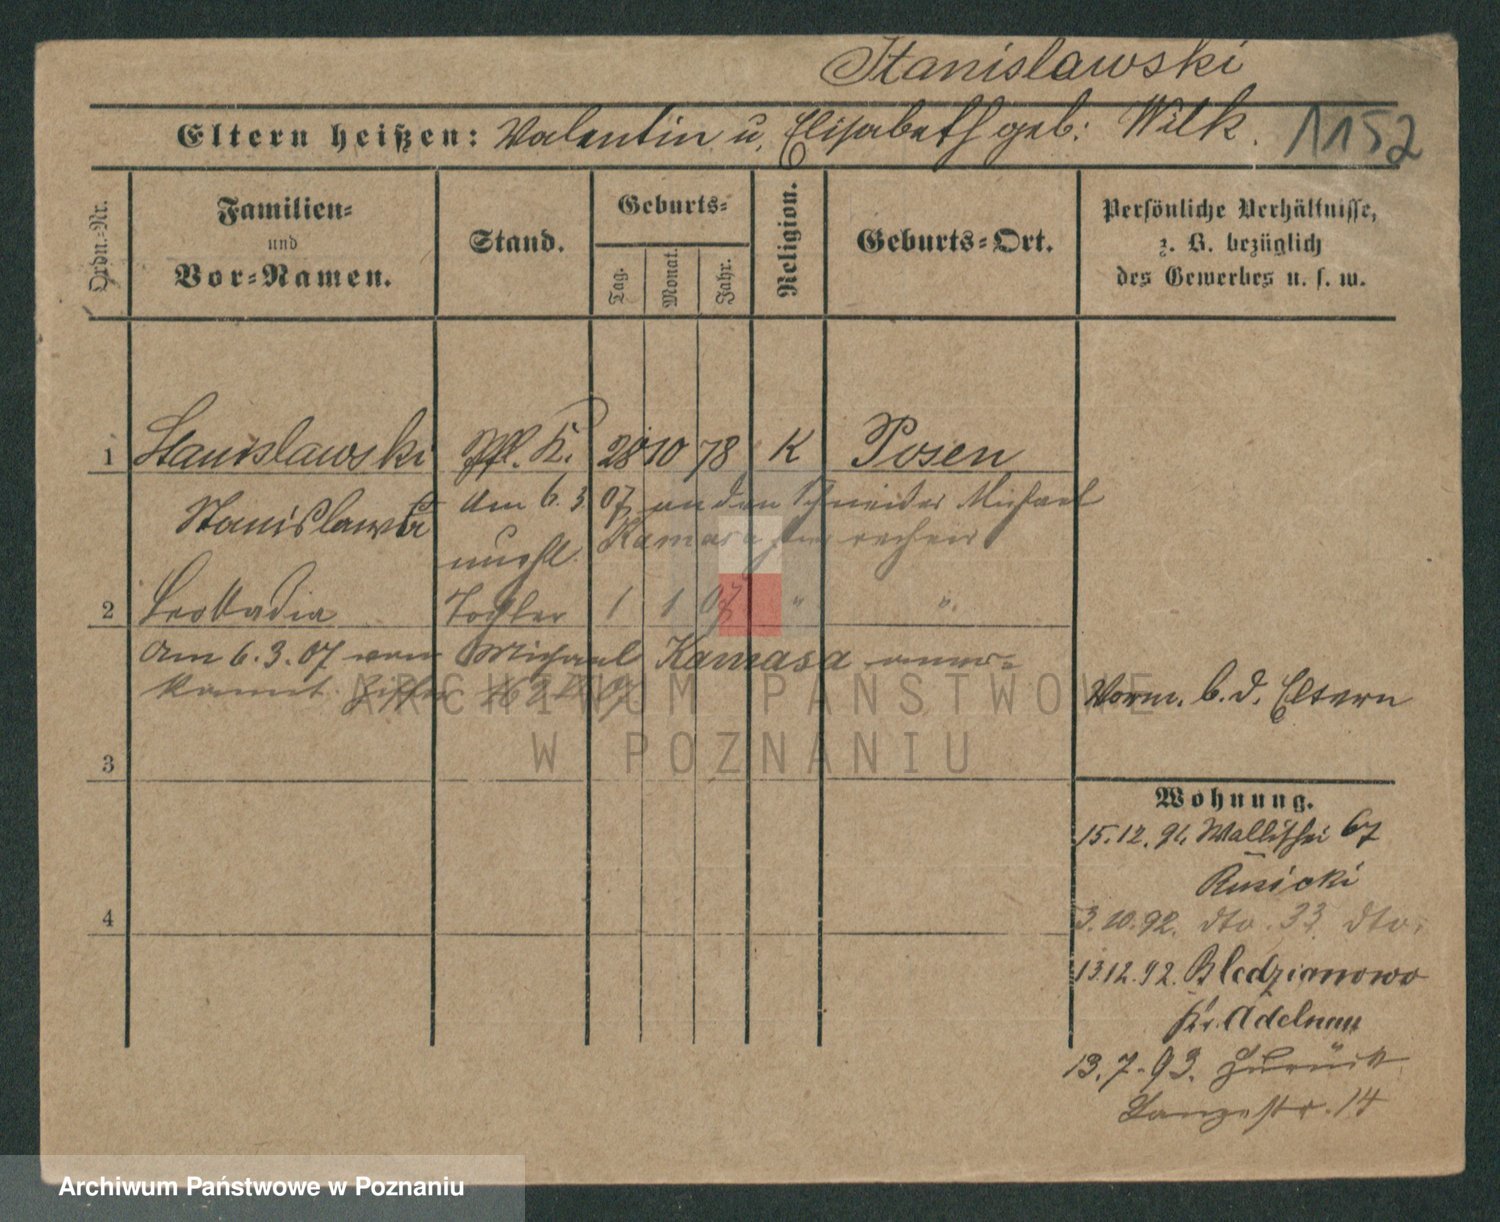 Stanislawski
Eltern heißen: Valentin u. Elisabeth geb: Wilk. 1152
Ordn.-Nr.
Familien-
und
Vor-Namen.
Stand.
Geburts-
Tag. Monat. Jahr.
Religion.
Geburts-Ort.
Persönliche Verhältnisse,
z. B. bezüglich
des Gewerbes u. s. w.
1 Stanislawski Pfl. K. 28 10 78 K Posen
Stanislawa Am 6.3.07 an den Schneider Michael
unehl. Kamasa
2 Leokadia Tochter 1 1 07 " "
Am 6.3.07 von Michael Kamasa aner-
kannt.
Vorm. b. d. Eltern
3
Wohnung.
15.12.91. Wallischei 67
Rusicki
4
3.10.92. dto. 33 dto.
13.12.92. Bledzianowo
Kr. Adelnau
13.7.93. zurück
Langestr. 14
ARCHIWUM PAŃSTWOWE
W POZNANIU
Archiwum Państwowe w Poznaniu